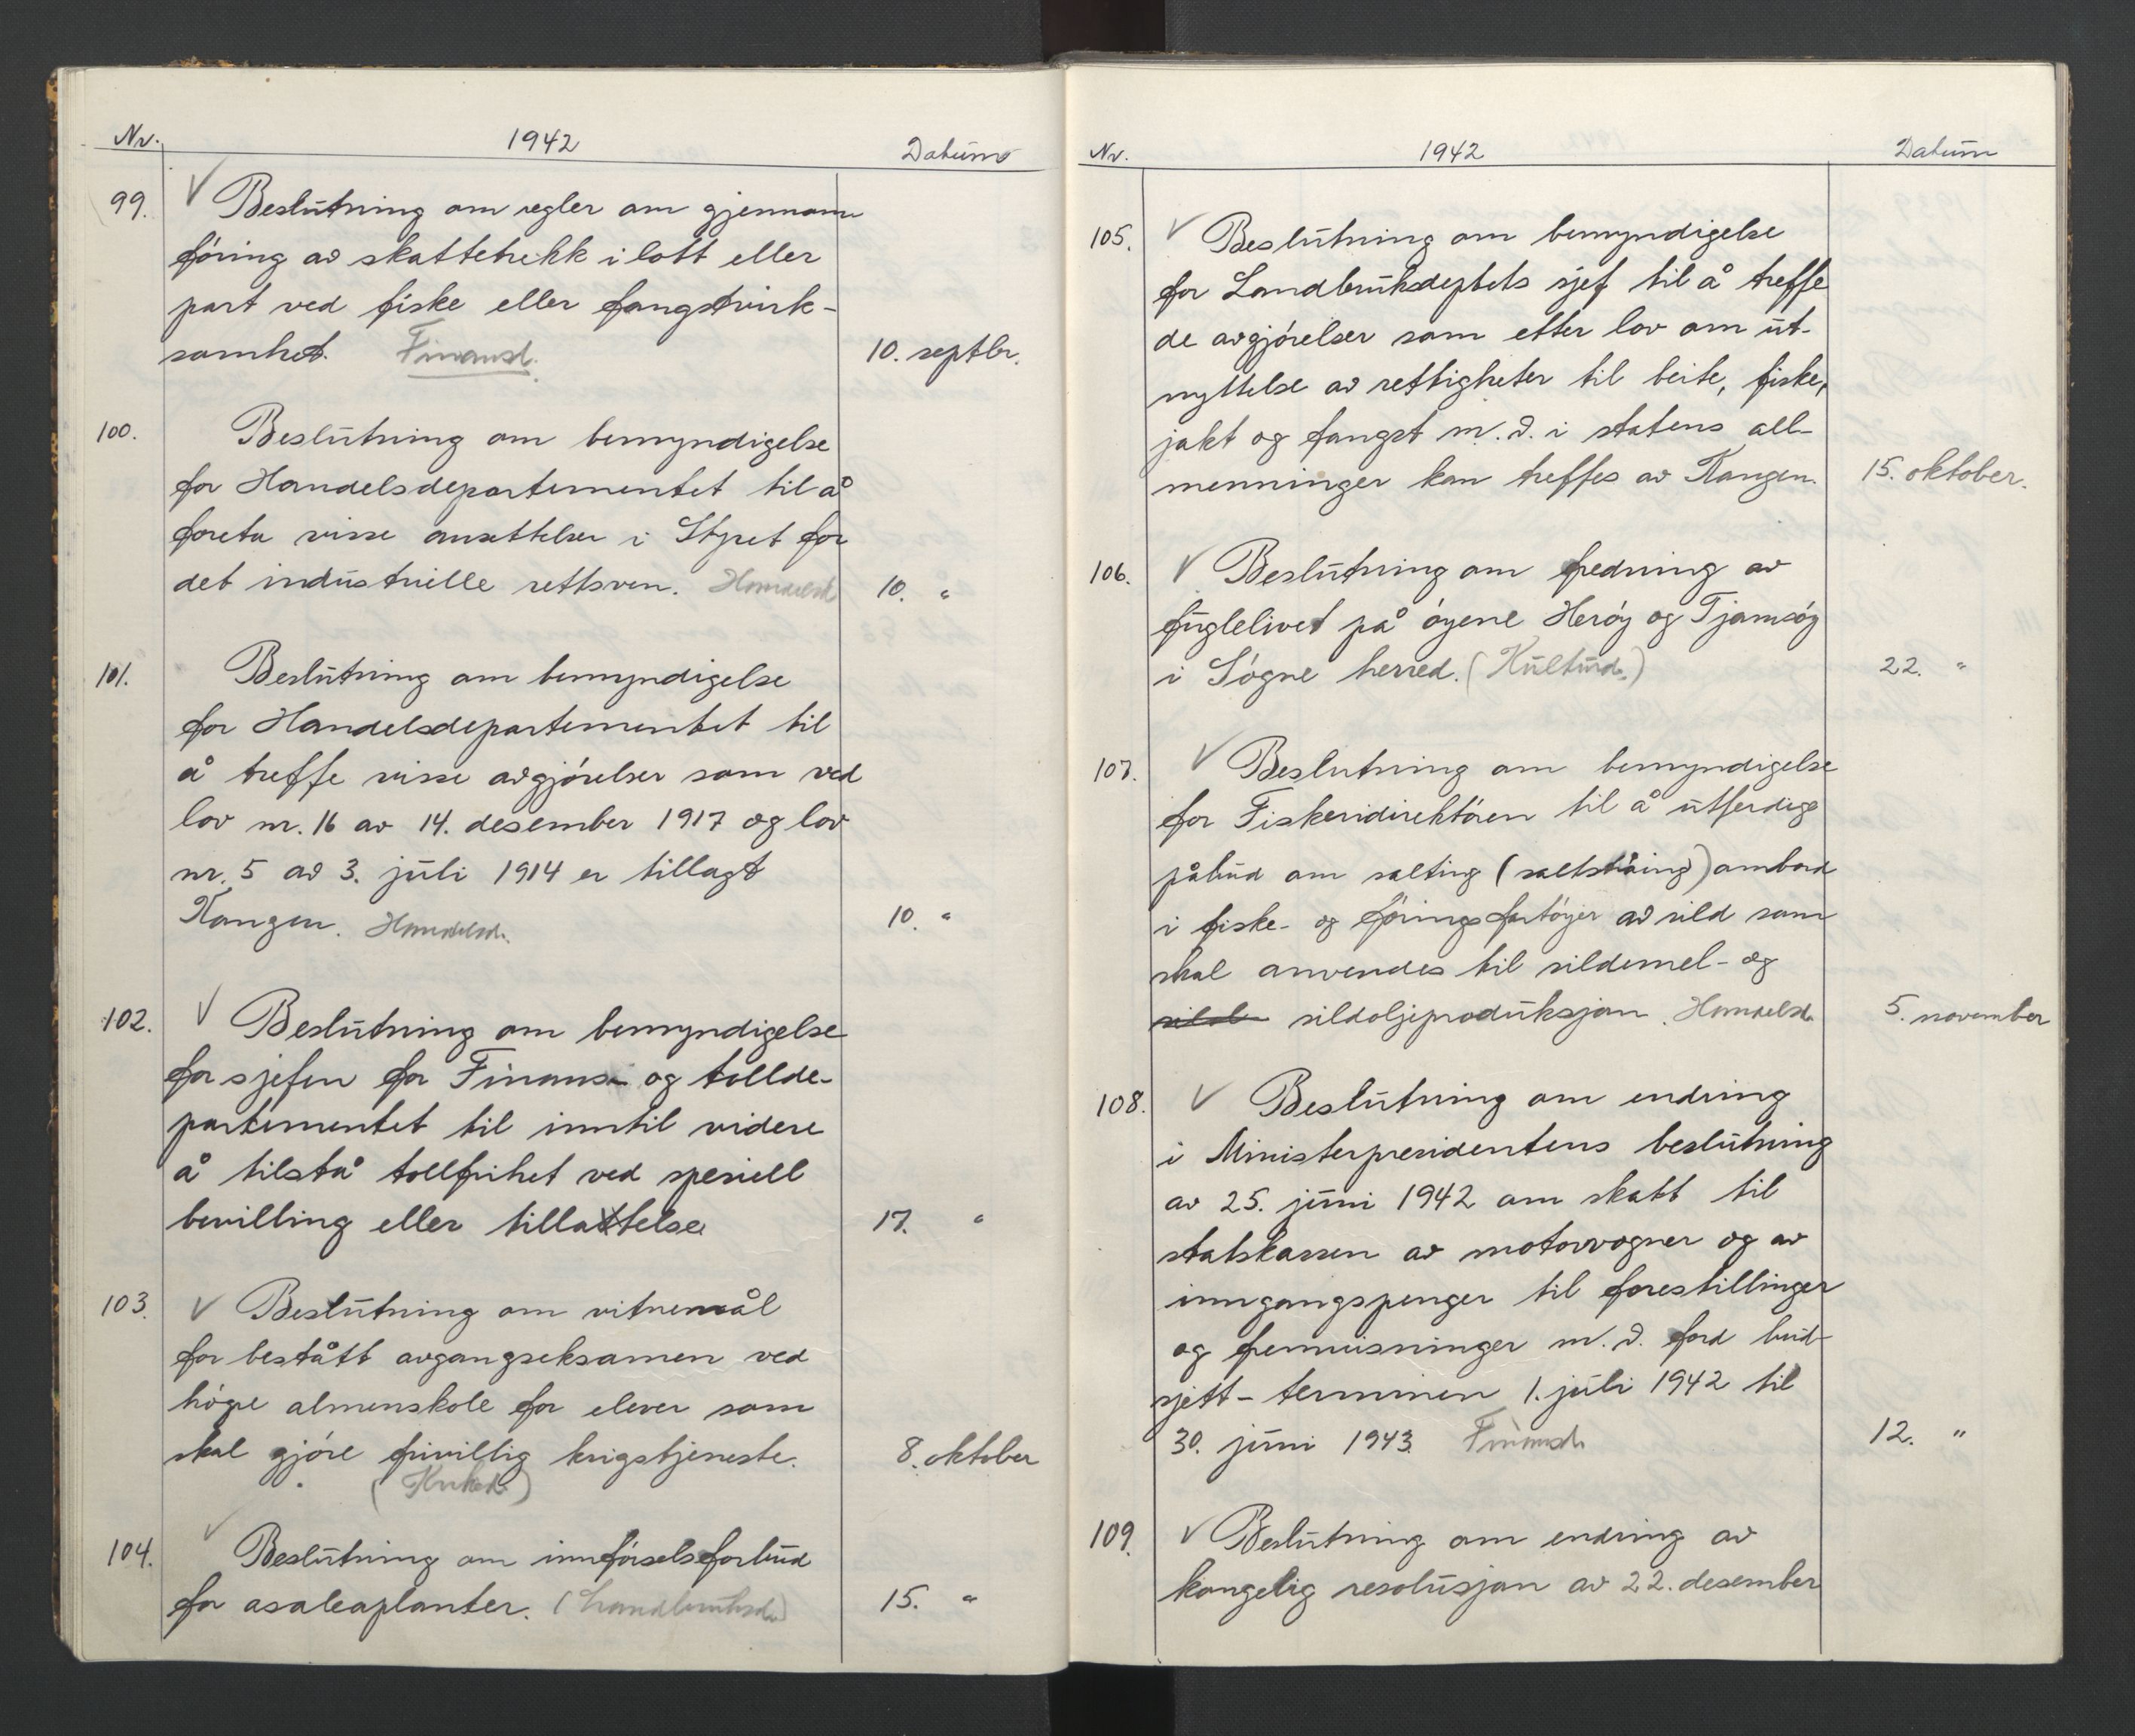 Nr. 1942 Datum
99. ✓ Beslutning om regler om gjennom
föring av skattetrekk i lott eller
part ved fiske eller fangstvirk-
somhet. Finansd. 10. septbr.
100. Beslutning om bemyndigelse
for Handelsdepartementet til å
foreta visse ansettelser i Styret for
det industrielle rettsvern. Handelsd. 10. "
101. Beslutning om bemyndigelse
for Handelsdepartementet til
å treffe visse avgjörelser som ved
lov nr. 16 av 14. desember 1917 og lov
nr. 5 av 3. juli 1914 er tillagt
Kongen. Handelsd. 10. "
102. ✓ Beslutning om bemyndigelse
for sjefen for Finans- og tollde-
partementet til inntil videre
å tilstå tollfrihet ved spesiell
bevilling eller tillattelse 17. "
103. ✓ Beslutning om vitnemål
for bestått avgangseksamen ved
högre almenskole for elever som
skal gjöre frivillig krigstjeneste. 8. oktober
104. ✓ Beslutning om innförselsforbud
for asaleaplanter. (Landbruksd.) 15. "
Nr. 1942 Datum
105. ✓ Beslutning om bemyndigelse
for Landbruksdeptets sjef til å treffe
de avgjörelser som etter lov om ut-
nyttelse av rettigheter til beite, fiske,
jakt og fangst m.v. i statens all-
menninger kan treffes av Kongen. 15. oktober.
106. ✓ Beslutning om fredning av
fuglelivet på öyene Heröy og Tjamsöy
i Sögne herred. (Kulturd.) 22. "
107. ✓ Beslutning om bemyndigelse
for Fiskeridirektören til å utferdige
påbud om salting (saltströing) ombord
i fiske- og föringsfartöyer av sild som
skal anvendes til sildemel- og
silde sildoljeproduksjon. Handelsd. 5. november
108. ✓ Beslutning om endring
i Ministerpresidentens beslutning
av 25. juni 1942 om skatt til
statskassen av motorvogner og av
inngangspenger til forestillinger
og fremvisninger m.v. ford bud-
sjett-terminen 1. juli 1942 til
30. juni 1943. Finansd. 12. "
109. ✓ Beslutning om endring av
kongelig resolusjon av 22. desember